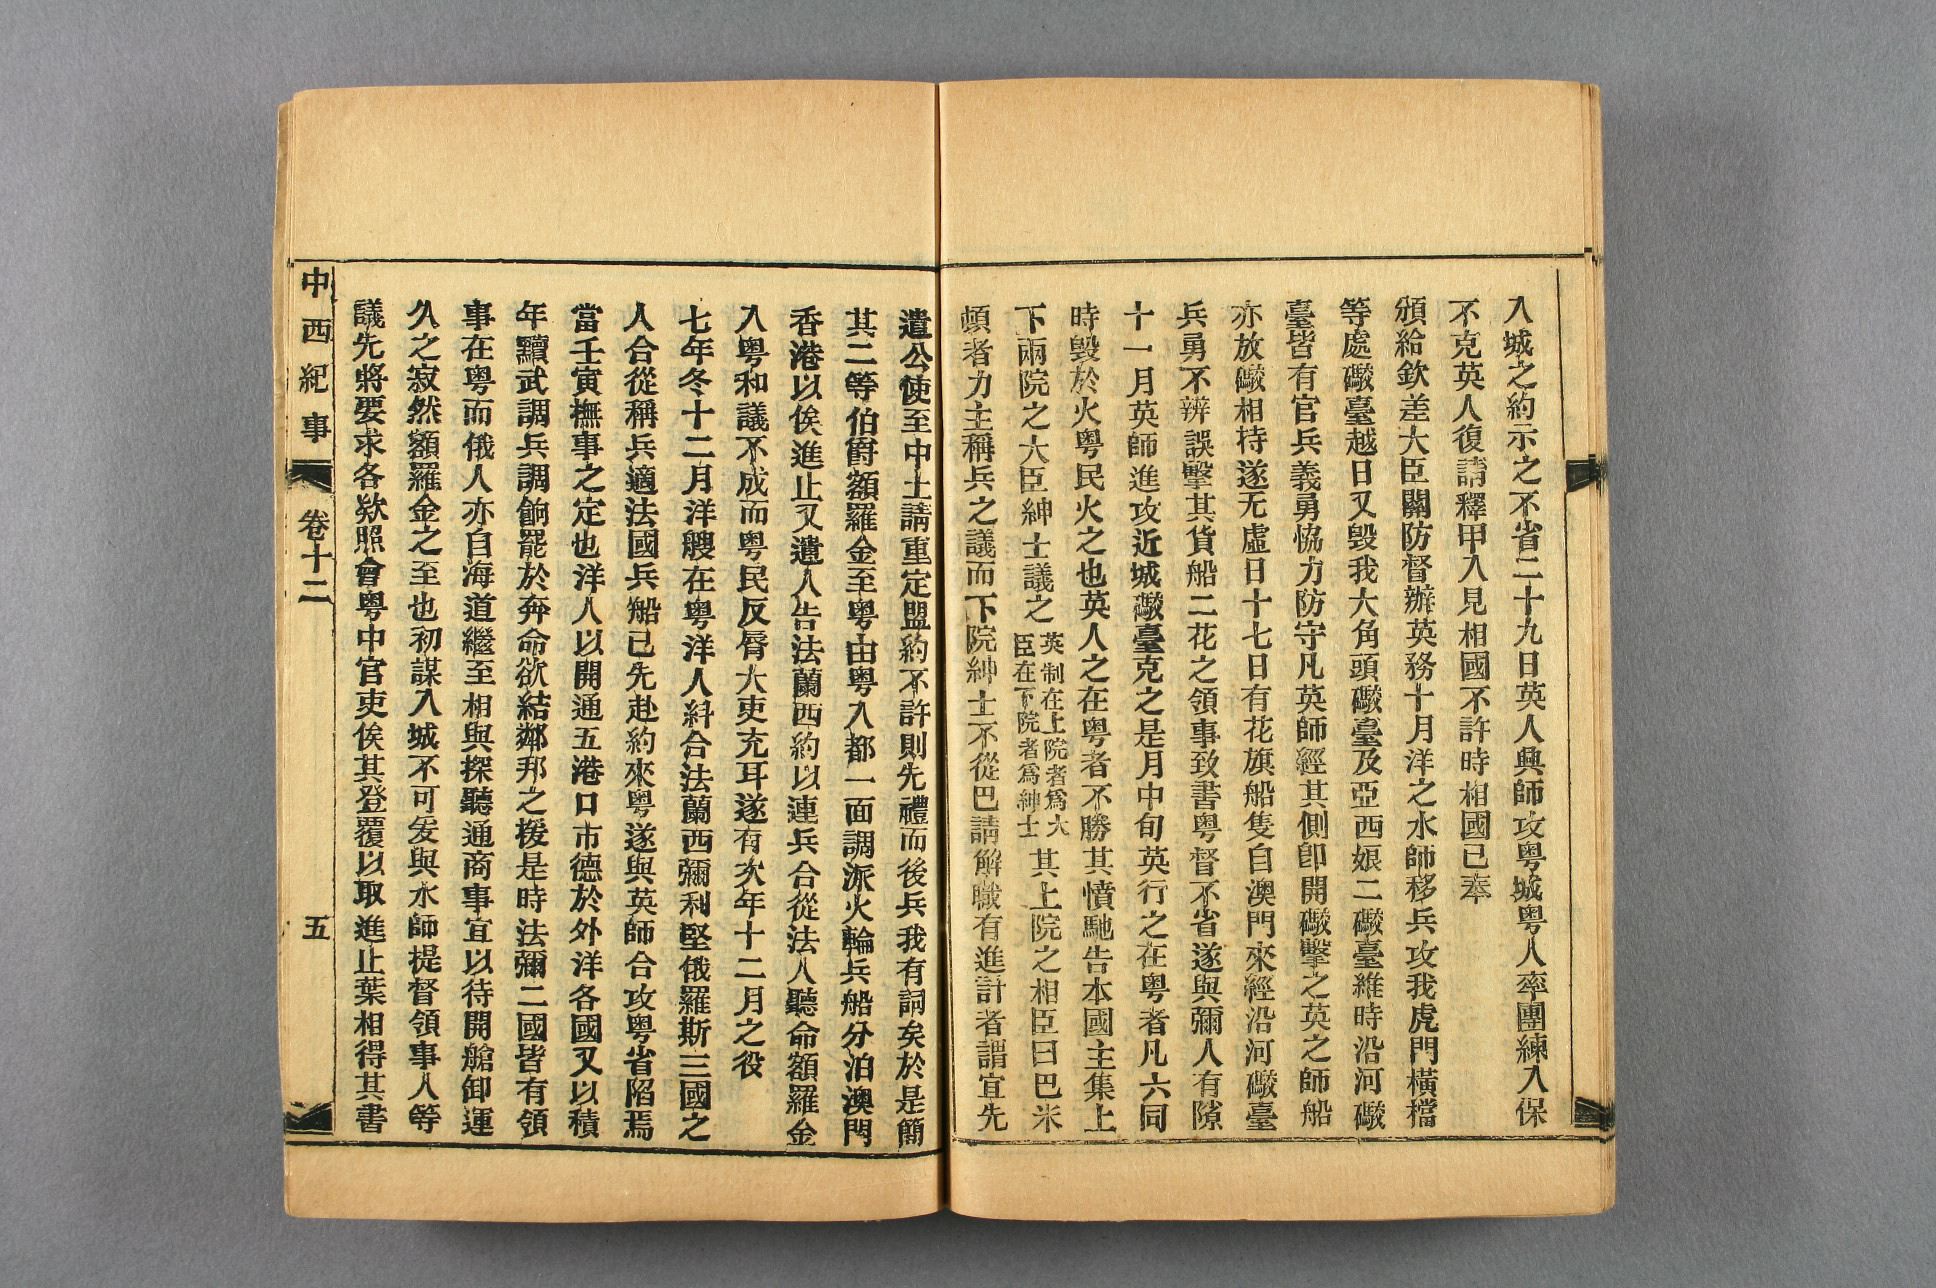 入城之約示之不省二十九日英人興師攻粤城粤人率團練入保
不克英人復請釋甲入見相國不許時相國已奉
頒給欽差大臣關防督辦英務十月洋之水師移兵攻我虎門橫檔
等處礮臺越日又毀我大角頭礮臺及亞西娘二礮臺維時沿河礮
臺皆有官兵義勇恊力防守凡英師經其側卽開礮擊之英之師船
亦放礮相持遂无虛日十七日有花旗船隻自澳門來經沿河礮臺
兵勇不辨誤擊其貨船二花之領事致書粤督不省遂與彌人有隙
十一月英師進攻近城礮臺克之是月中旬英行之在粤者凡六同
時毀於火粤民火之也英人之在粤者不勝其憤馳告本國主集上
下兩院之大臣紳士議之英制在上院者爲大臣在下院者爲紳士其上院之相臣曰巴米
頓者力主稱兵之議而下院紳士不從巴請解職有進計者謂宜先
遣公使至中土請重定盟約不許則先禮而後兵我有詞矣於是簡
其二等伯爵額羅金至粤由粤入都一面調派火輪兵船分泊澳門
香港以俟進止又遣人告法蘭西約以連兵合從法人聽命額羅金
入粤和議不成而粤民反脣大吏充耳遂有次年十二月之役
七年冬十二月洋艘在粤洋人糾合法蘭西彌利堅俄羅斯三國之
人合從稱兵適法國兵船已先赴約來粤遂與英師合攻粤省陷焉
當壬寅撫事之定也洋人以開通五港口市德於外洋各國又以積
年黷武調兵調餉罷於奔命欲結鄰邦之援是時法彌二國皆有領
事在粤而俄人亦自海道繼至相與探聽通商事宜以待開艙卸運
久之寂然額羅金之至也初謀入城不可爰與水師提督領事人等
議先將要求各欵照會粤中官吏俟其登覆以取進止葉相得其書
中西紀事 卷十二 五